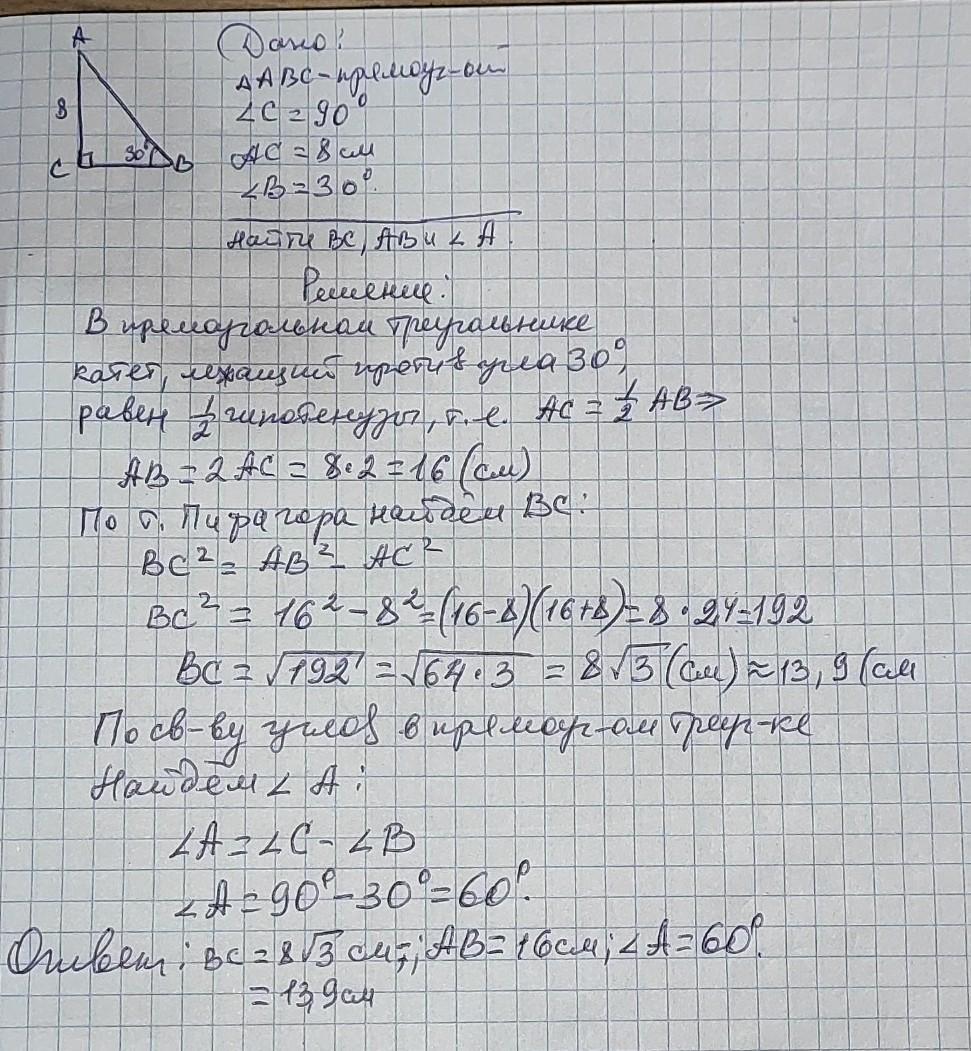 A
8
C
30°
B
Дано:
△ABC-прямоуг-ой
∠C = 90°
AC = 8 см
∠B = 30°.
Найти BC, AB и ∠A.
Решение:
В прямоугольном треугольнике
катет, лежащий против угла 30°,
равен 1/2 гипотенузы, т. е. AC = 1/2 AB ⇒
AB = 2 AC = 8·2 = 16 (см)
По т. Пифагора найдём BC:
BC² = AB² - AC²
BC² = 16² - 8² = (16-8)(16+8) = 8·24 = 192
BC = √192 = √64·3 = 8√3 (см) ≈ 13,9 (см
По св-ву углов в прямоуг-ом треуг-ке
Найдём ∠A:
∠A = ∠C - ∠B
∠A = 90° - 30° = 60°.
Ответ: BC = 8√3 см=; AB = 16 см; ∠A = 60°.
= 13,9 см